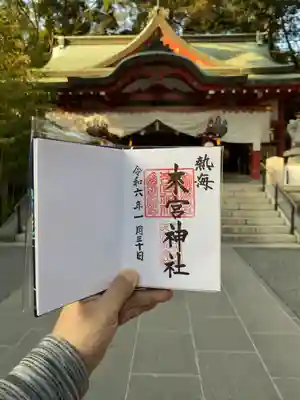 熱海
来宮神社
令和六年一月三十日